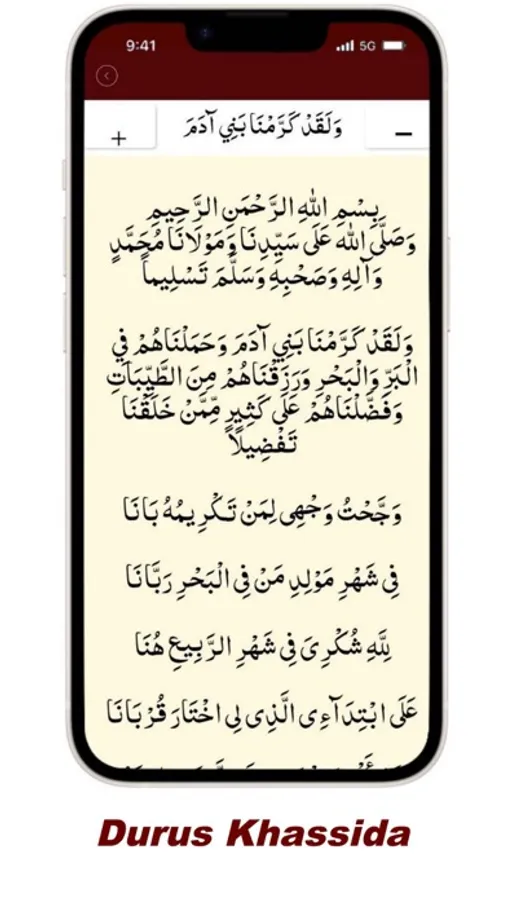 9:41
5G
+
وَلَقَدْ كَرَّمْنَا بَنِي آدَمَ
−
بِسْمِ اللهِ الرَّحْمَنِ الرَّحِيمِ
وَصَلَّى اللهُ عَلَى سَيِّدِنَا وَمَوْلَانَا مُحَمَّدٍ
وَآلِهِ وَصَحْبِهِ وَسَلَّمَ تَسْلِيماً
وَلَقَدْ كَرَّمْنَا بَنِي آدَمَ وَحَمَلْنَاهُمْ فِي
الْبَرِّ وَالْبَحْرِ وَرَزَقْنَاهُمْ مِنَ الطَّيِّبَاتِ
وَفَضَّلْنَاهُمْ عَلَى كَثِيرٍ مِّمَّنْ خَلَقْنَا
تَفْضِيلاً
وَجَّهْتُ وَجْهِى لِمَنْ تَكْرِيمُهُ بَانَا
فِي شَهْرِ مَوْلِدِ مَنْ فِي الْبَحْرِ رَبَّانَا
لِلَّهِ شُكْرِىَ فِي شَهْرِ الرَّبِيعِ هُنَا
عَلَى ابْتِدَآءِى الَّذِى لِى اخْتَارَ قُرْبَانَا
Durus Khassida